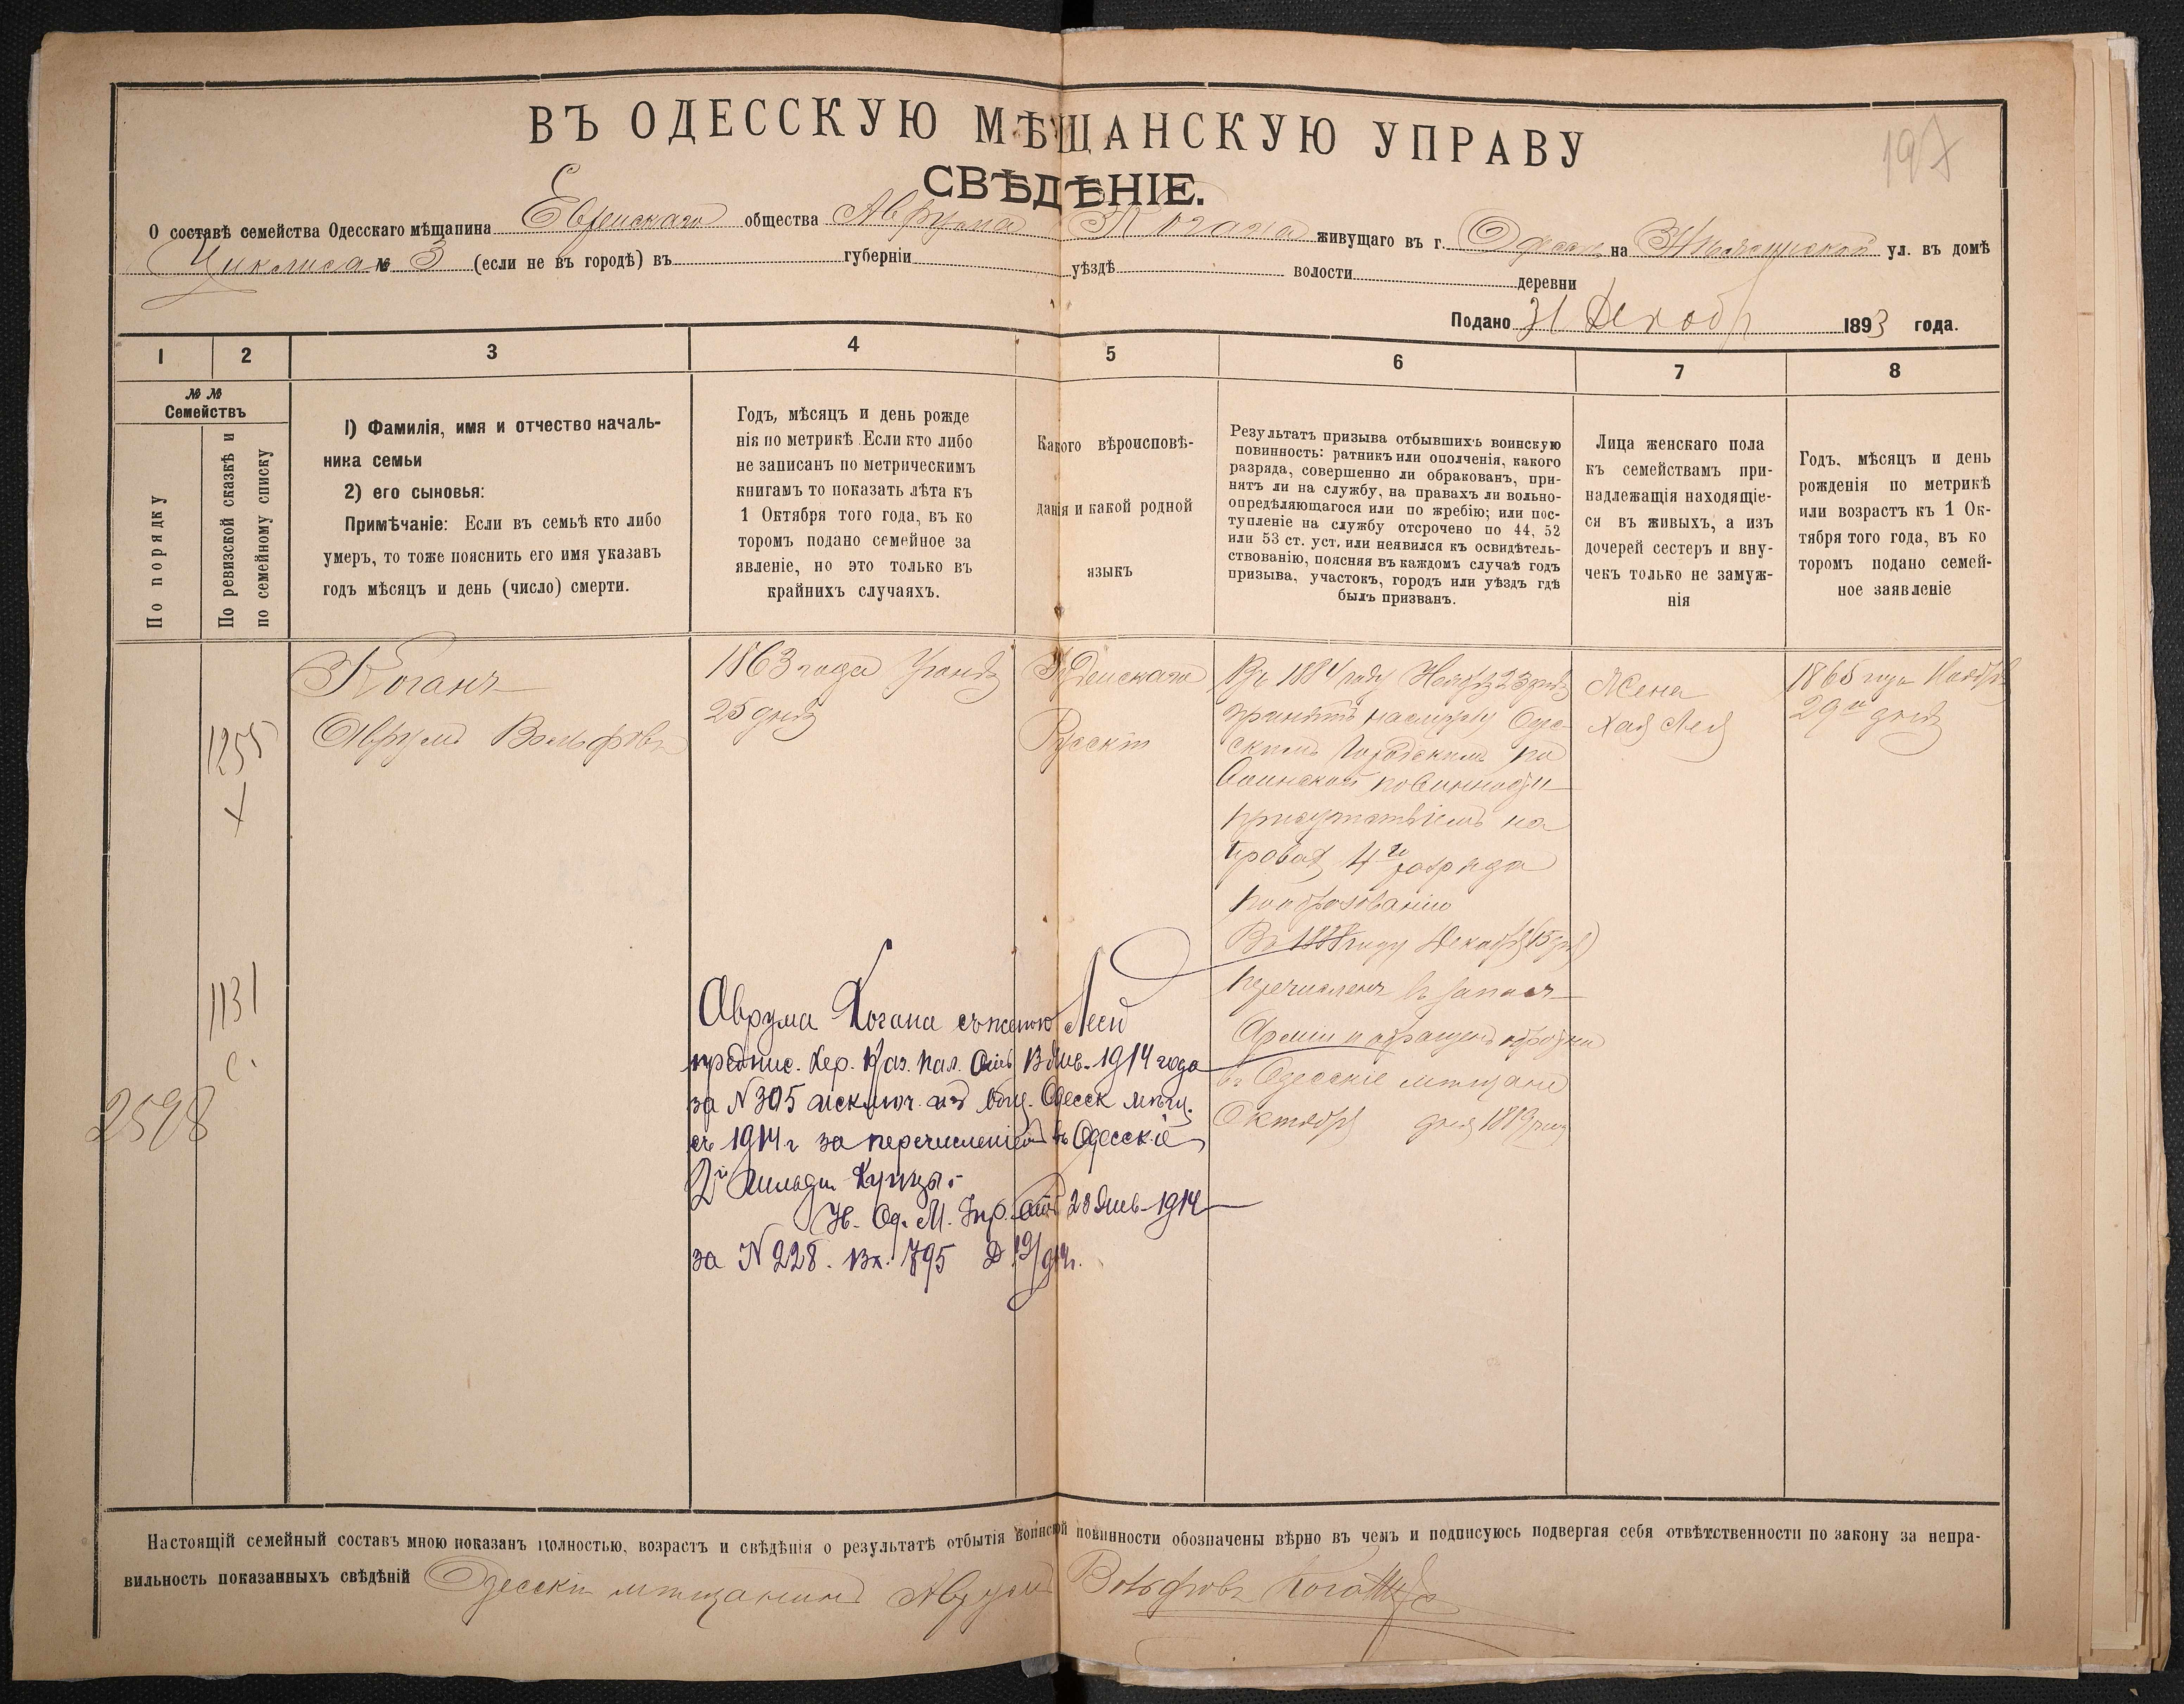 197
ВЪ ОДЕССКУЮ МѢЩАНСКУЮ УПРАВУ
СВѢДѢНІЕ.
О составѣ семейства Одесскаго мѣщанина Еврейскаго общества Аврума Когана живущаго въ г. Одессѣ на ул. въ домѣ
№ 3 (если не въ городѣ) въ губерніи уѣздѣ волости деревни
Подано 31 Декабр 1893 года.
1 2 3 4 5 6 7 8
№ №
Семействъ
По порядку
По ревизской сказкѣ и
по семейному списку
1) Фамилія, имя и отчество началь-
ника семьи
2) его сыновья:
Примѣчаніе: Если въ семьѣ кто либо
умеръ, то тоже пояснить его имя указавъ
годъ мѣсяцъ и день (число) смерти.
Годъ, мѣсяцъ и день рожде
нія по метрикѣ Если кто либо
не записанъ по метрическимъ
книгамъ то показать лѣта къ
1 Октября того года, въ ко
торомъ подано семейное за
явленіе, но это только въ
крайнихъ случаяхъ.
Какого вѣроисповѣ-
данія и какой родной
языкъ
Результатъ призыва отбывшихъ воинскую
повинность: ратникъ или ополченія, какого
разряда, совершенно ли обракованъ, при-
нятъ ли на службу, на правахъ ли вольно-
опредѣляющагося или по жребію; или пос-
тупленіе на службу отсрочено по 44, 52
или 53 ст. уст. или неявился къ освидѣтель-
ствованію, поясняя въ каждомъ случаѣ годъ
призыва, участокъ, городъ или уѣздъ гдѣ
былъ призванъ.
Лица женскаго пола
къ семействамъ при-
надлежащія находящіе-
ся въ живыхъ, а изъ
дочерей сестеръ и вну-
чекъ только не замуж-
нія
Годъ, мѣсяцъ и день
рожденія по метрикѣ
или возрастъ къ 1 Ок-
тября того года, въ ко
торомъ подано семей-
ное заявленіе
1255
х
1131
с.
2598
Коганъ
Аврумъ Вольфовъ
1863 года
25 дня
Іудейскаго
Русскій
Въ 1884 году Ноября 23 дня
принятъ на службу Одес-
скимъ Городскимъ по
Воинской повинности
присутствіемъ на
правах 4го разряда
по образованію
Въ 1888 году Декабря 15 дня
перечисленъ въ запасъ
Арміи и
въ Одесскіе мѣщане
Октября дня 1889 года
Жена
Хая Лея
1865 года Ноября
29го дня
Аврума Когана съ женою Леей
предпис. Хер. Каз. пал. отъ 13 Янв. 1914 года
за N 305 исключ. изъ общ. Одесск мѣщ.
съ 1914 г за перечисленіемъ въ Одесскіе
2й гильдіи Купцы.
Од. М. Упр. отъ 28 Янв 1914
за N 228. вх. 795
Настоящій семейный составъ мною показанъ полностью, возрастъ и свѣдѣнія о результатѣ отбытія воинской повинности обозначены вѣрно въ чемъ и подписуюсь подвергая себя отвѣтственности по закону за непра-
вильность показанныхъ свѣдѣній Одесскій мѣщанинъ Аврумъ Вольфовъ Коганъ